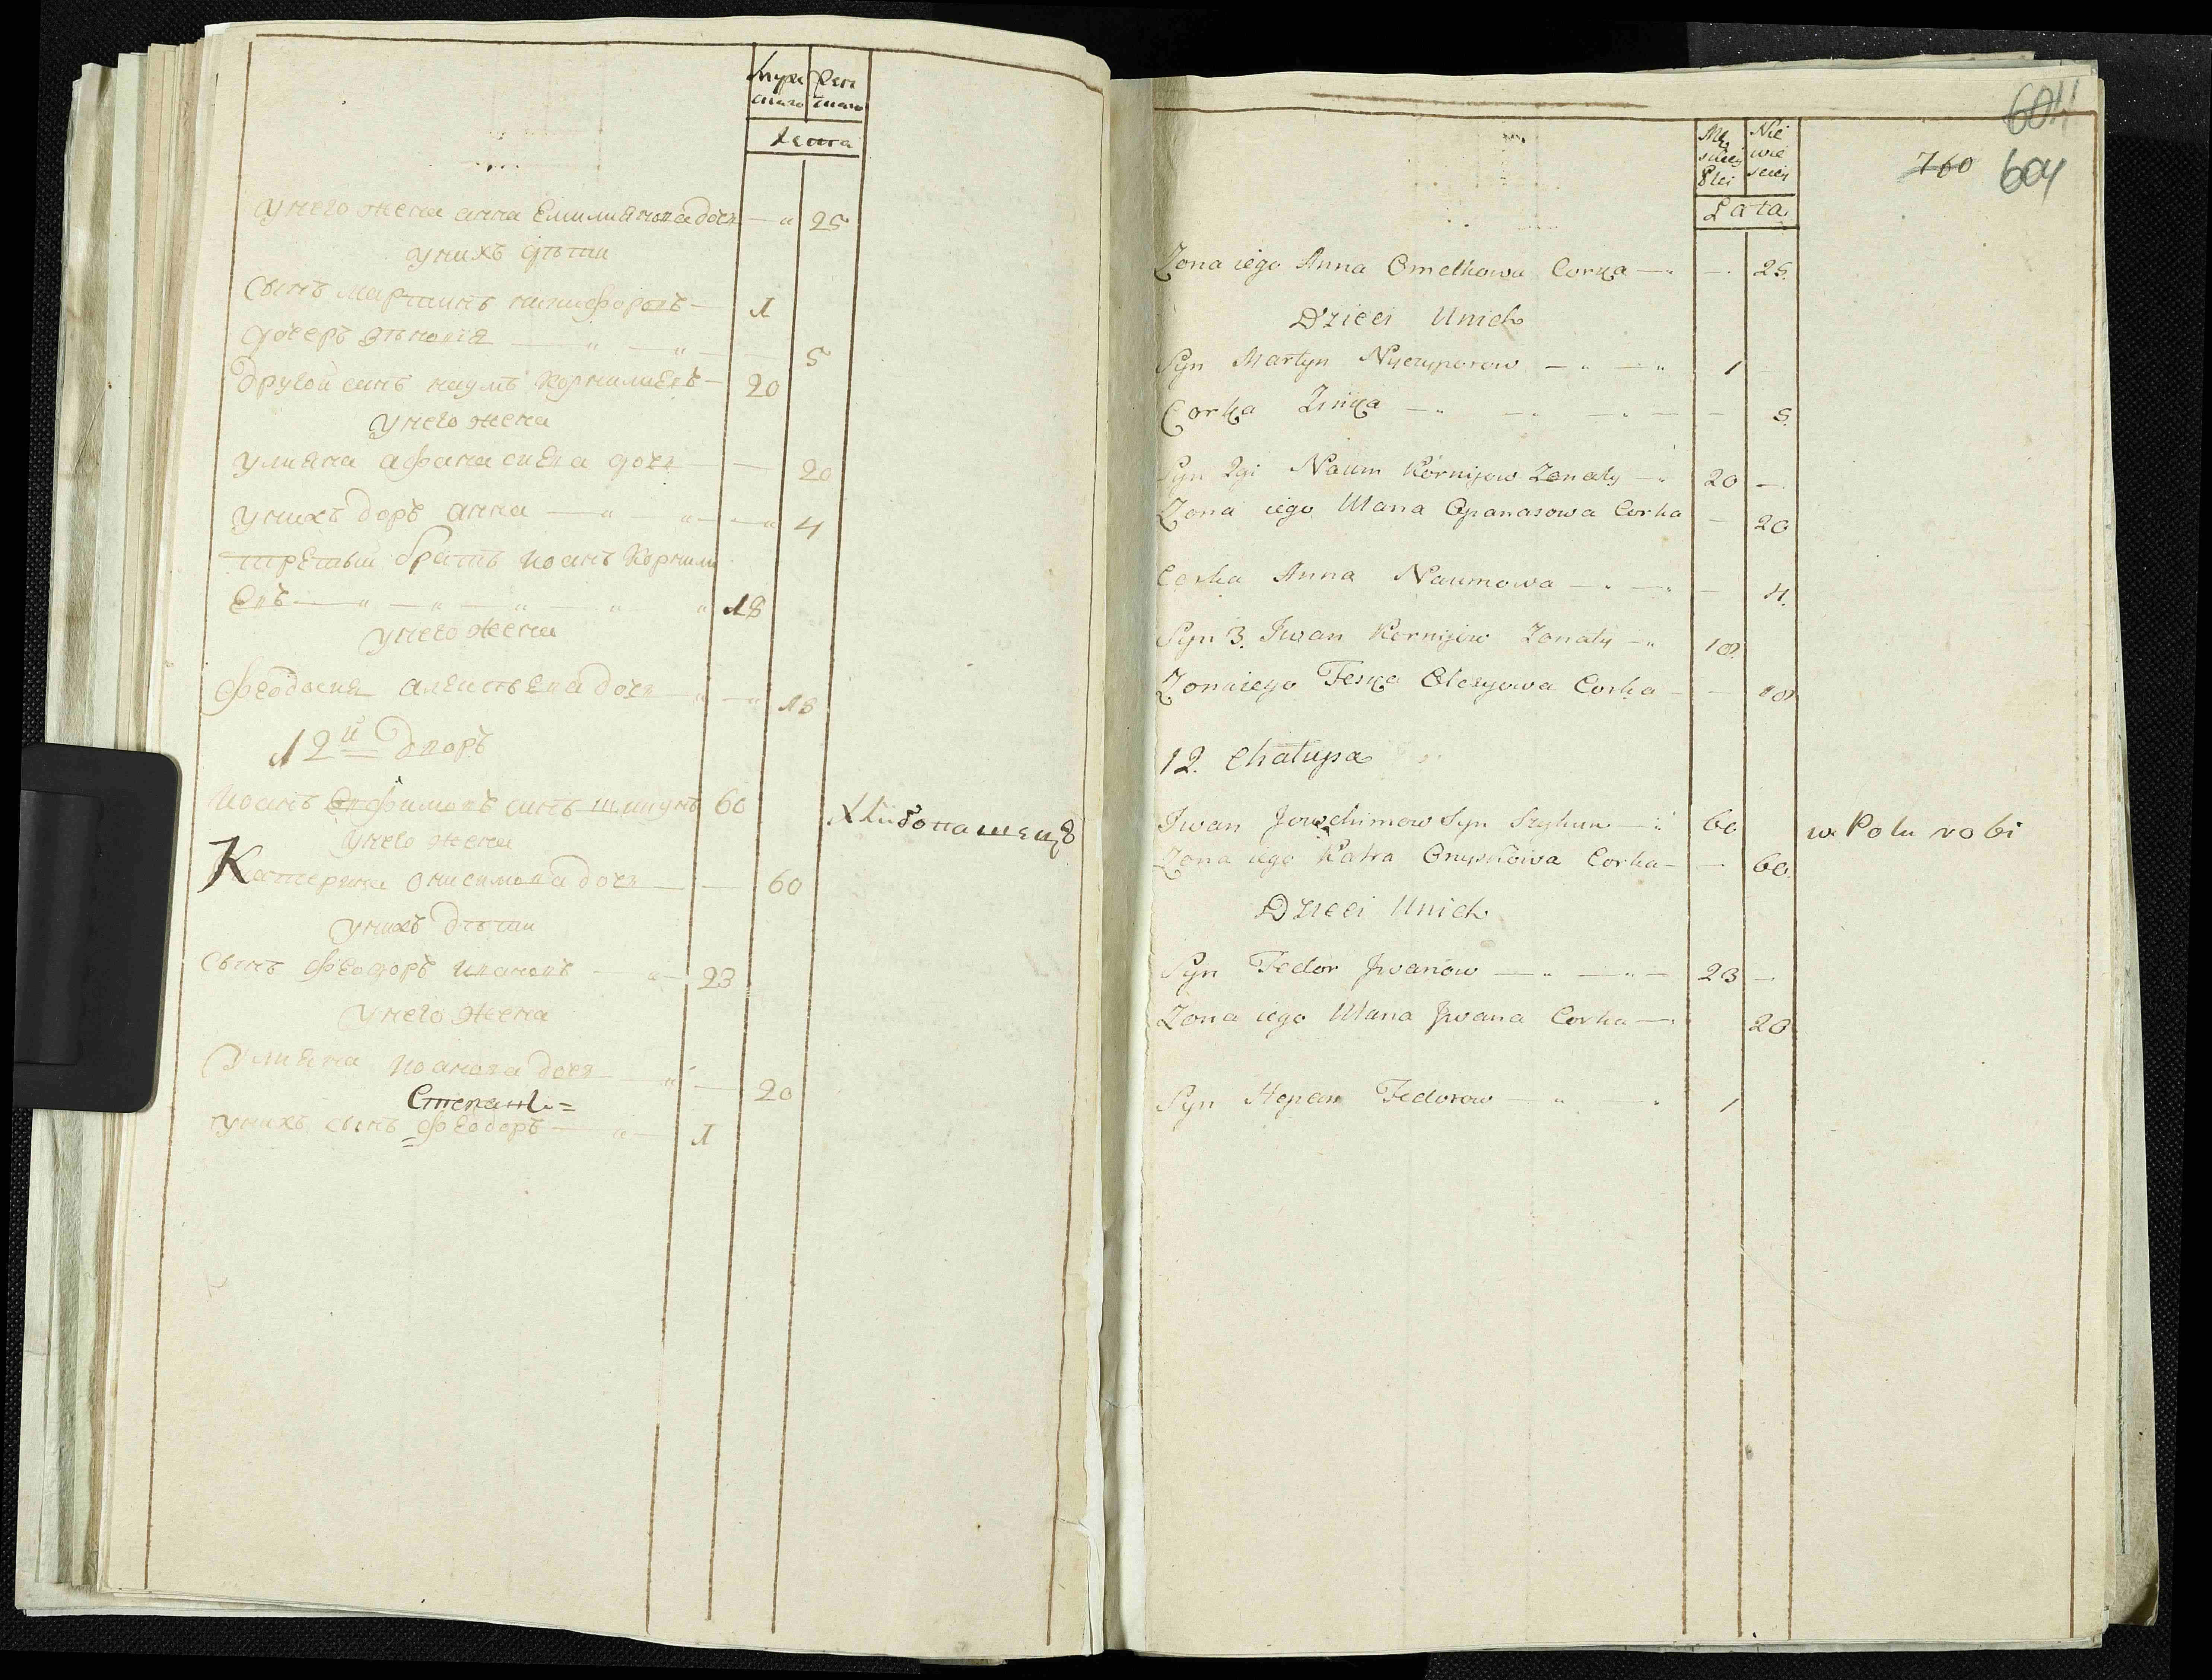 Муже Жен
скаго скаго
Лета
у него жена анна Емилиянова дочь — " 25
у нихъ дѣти
Сынъ Мартинъ никифоровъ — 1
дочеръ зѣновия — " — " — 5
Другой синъ наумъ Корнилиевъ — 20
У него жена
улияна афанасиева дочь — — 20
у нихъ дочъ анна — " — " — " 4
третьи братъ иоанъ Корнили
евъ — " — " — " — " — " 18
у него жена
феодосия алексѣева дочь — " — " 18
12й Дворъ
иоанъ Евфимовъ синъ шпигунъ 60 хлѣбопашецъ
у него жена
Катерина онисимова дочь — — 60
у нихъ дѣти
сынъ феодоръ ивановъ — " — 23
у него жена
Улияна иоанова дочь — " — 20
Степанъ =
у нихъ сынъ феодоръ — " — 1
604
760 604
Mę Nie
skiey wie
Płci sciey
Lata
Zona iego Anna Omelkowa Corka — — 25.
Dzieci Unich
Syn Martyn Nyczyporow — " — " 1
Corka Zinka — " — " — " — — 5.
Syn 2gi Naum Kornijow Zonaty — " 20 —
Zona iego Ulana Opanasowa Corka — 20
Corka Anna Naumowa — " — " — 4.
Syn 3. Iwan Kornijow Zonaty — " 18.
Zona iego Feska Olexyowa Corka — — 18
12. Chałupa
Iwan Jowchimow Syn Szyhun — " 60 w Polu robi
Zona iego Katra Onyskowa Corka — — 60.
Dzieci Unich
Syn Fedor Jwanow — " — " — 23 —
Zona iego Ulana Jwana Corka — " 20
Syn Stepan Fedorow — " — " 1